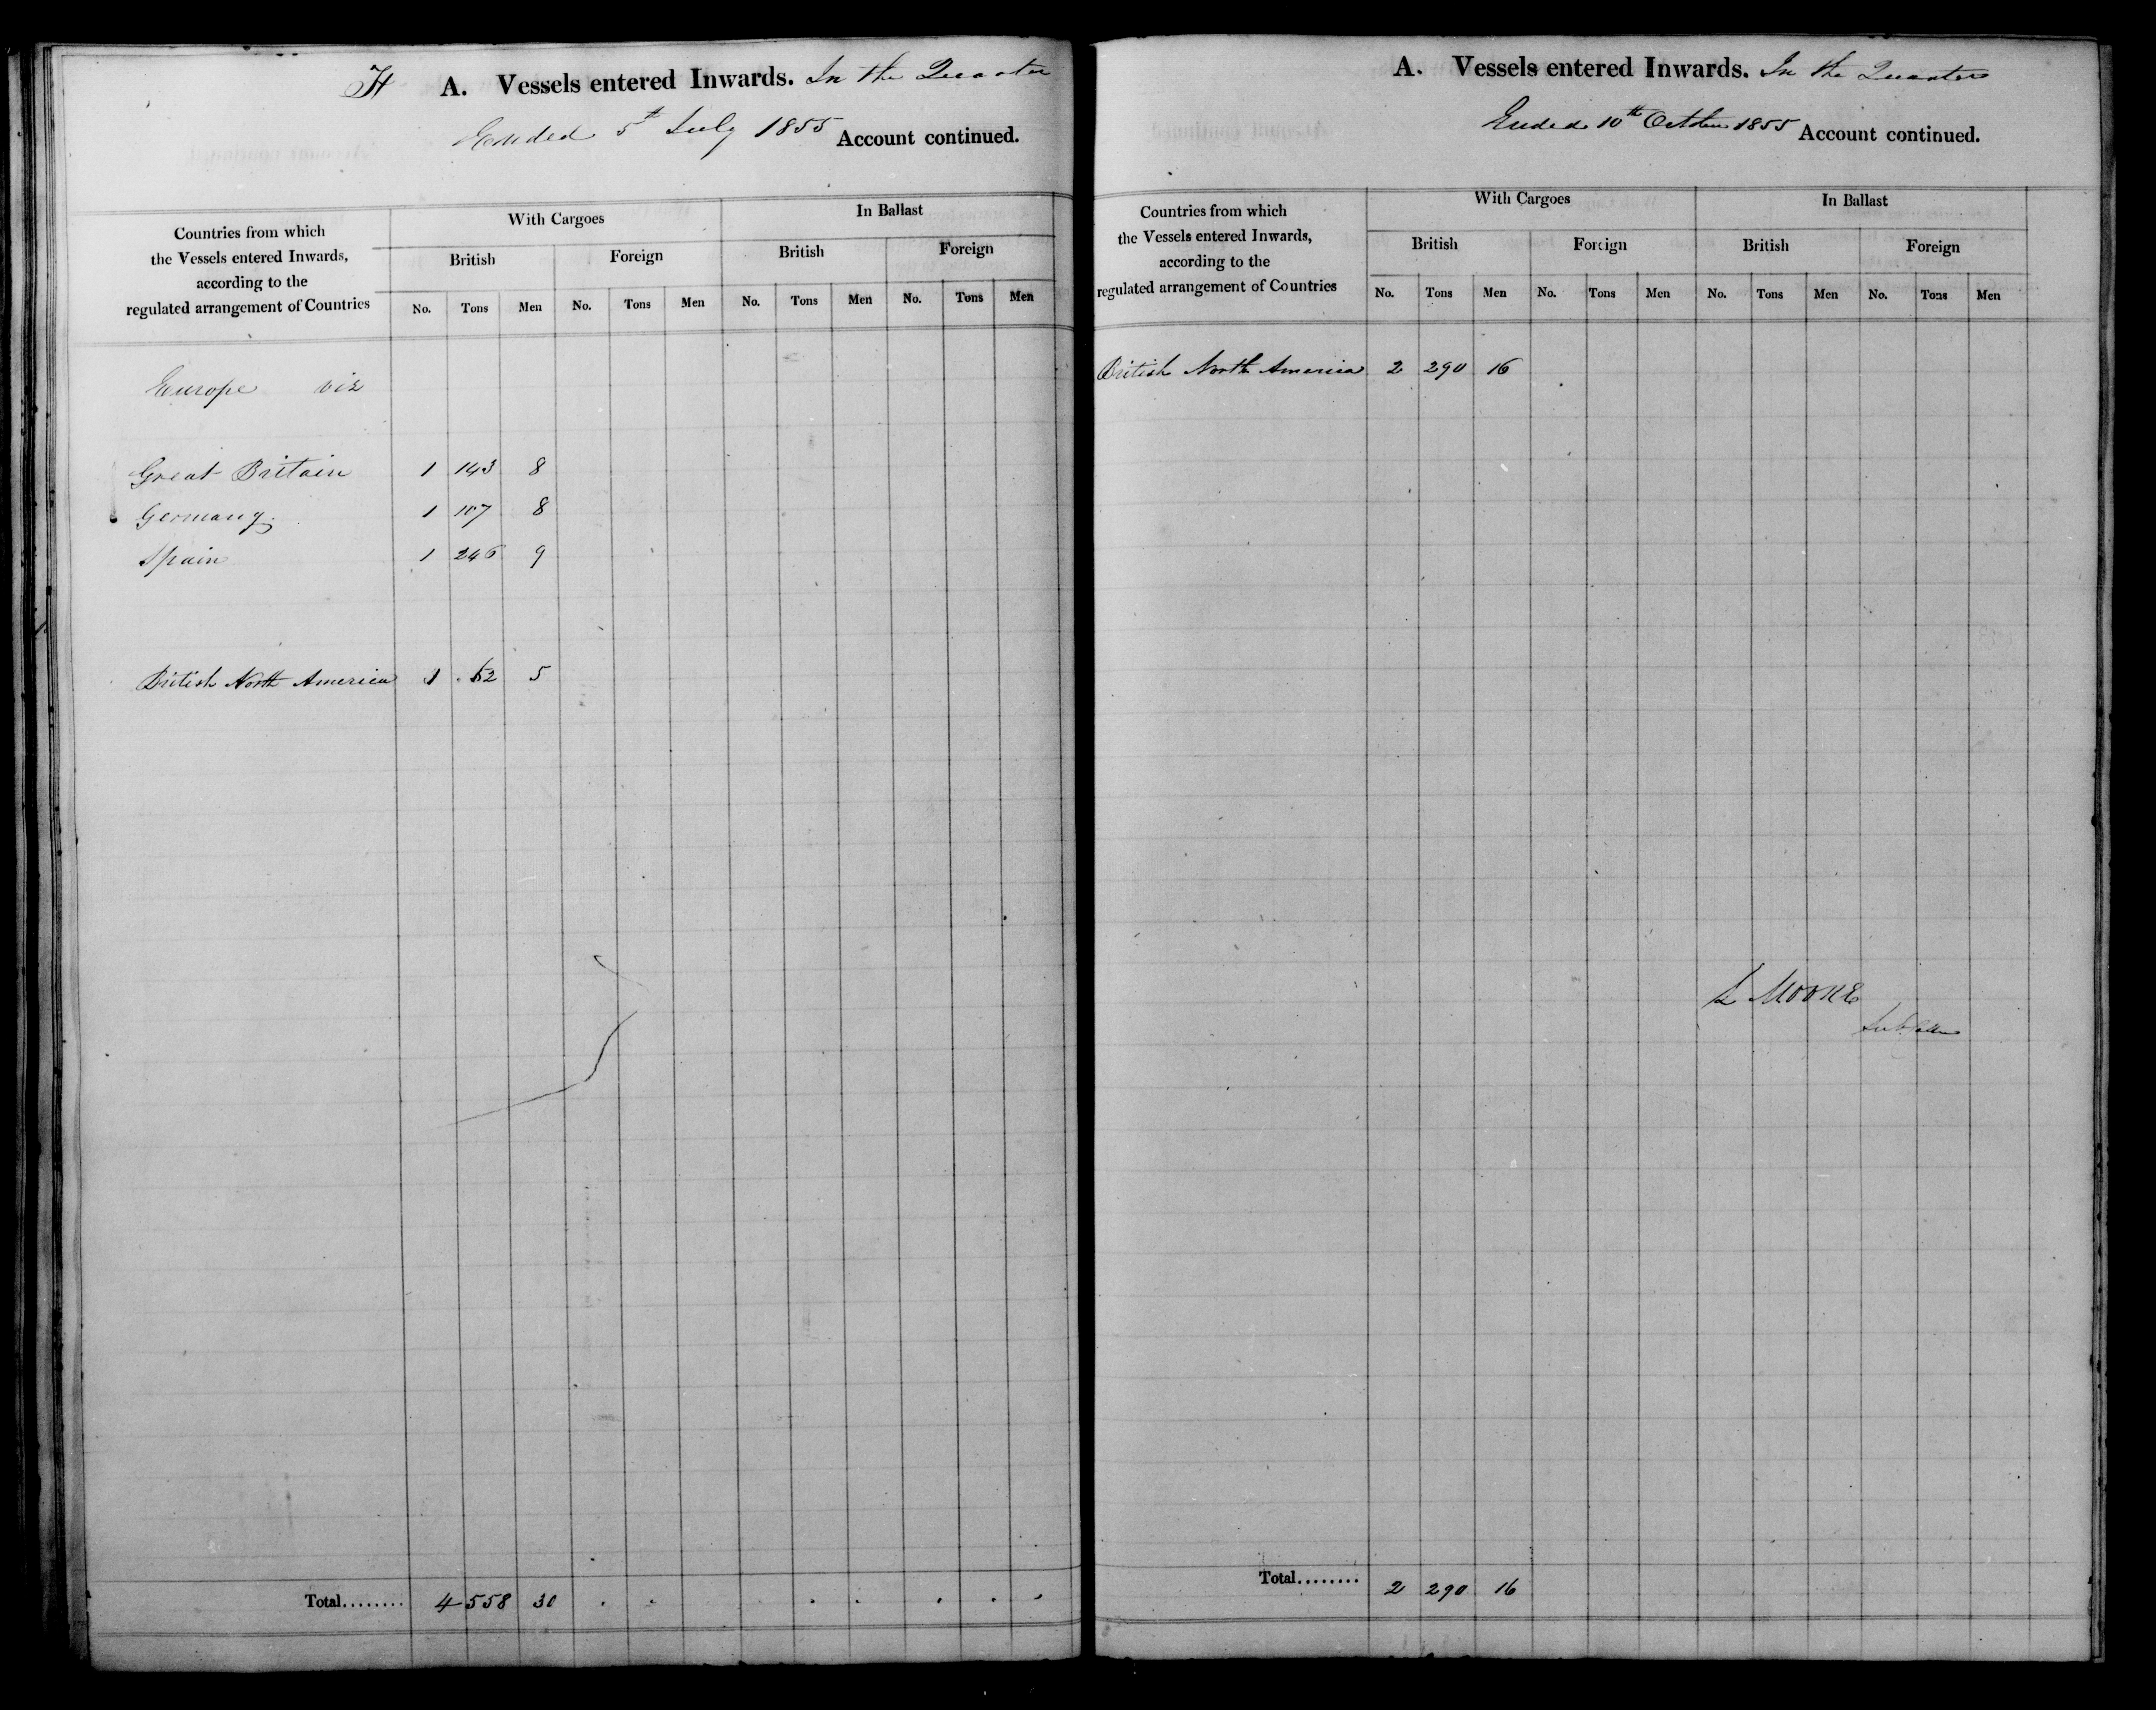 H A. Vessels entered Inwards. In the Quarter
Ended 5th July 1855 Account continued.
Countries from which
the Vessels entered Inwards,
according to the
regulated arrangement of Countries
With Cargoes In Ballast
British Foreign British Foreign
No. Tons Men No. Tons Men No. Tons Men No. Tons Men
Europe viz
Great Britain 1 143 8
Germany 1 107 8
Spain 1 246 9
British North America 1 62 5
Total........ 4 558 30
A. Vessels entered Inwards. In the Quarter
Ended 10th October 1855 Account continued.
Countries from which
the Vessels entered Inwards,
according to the
regulated arrangement of Countries
With Cargoes In Ballast
British Foreign British Foreign
No. Tons Men No. Tons Men No. Tons Men No. Tons Men
British North America 2 290 16
Moore
Total........ 2 290 16